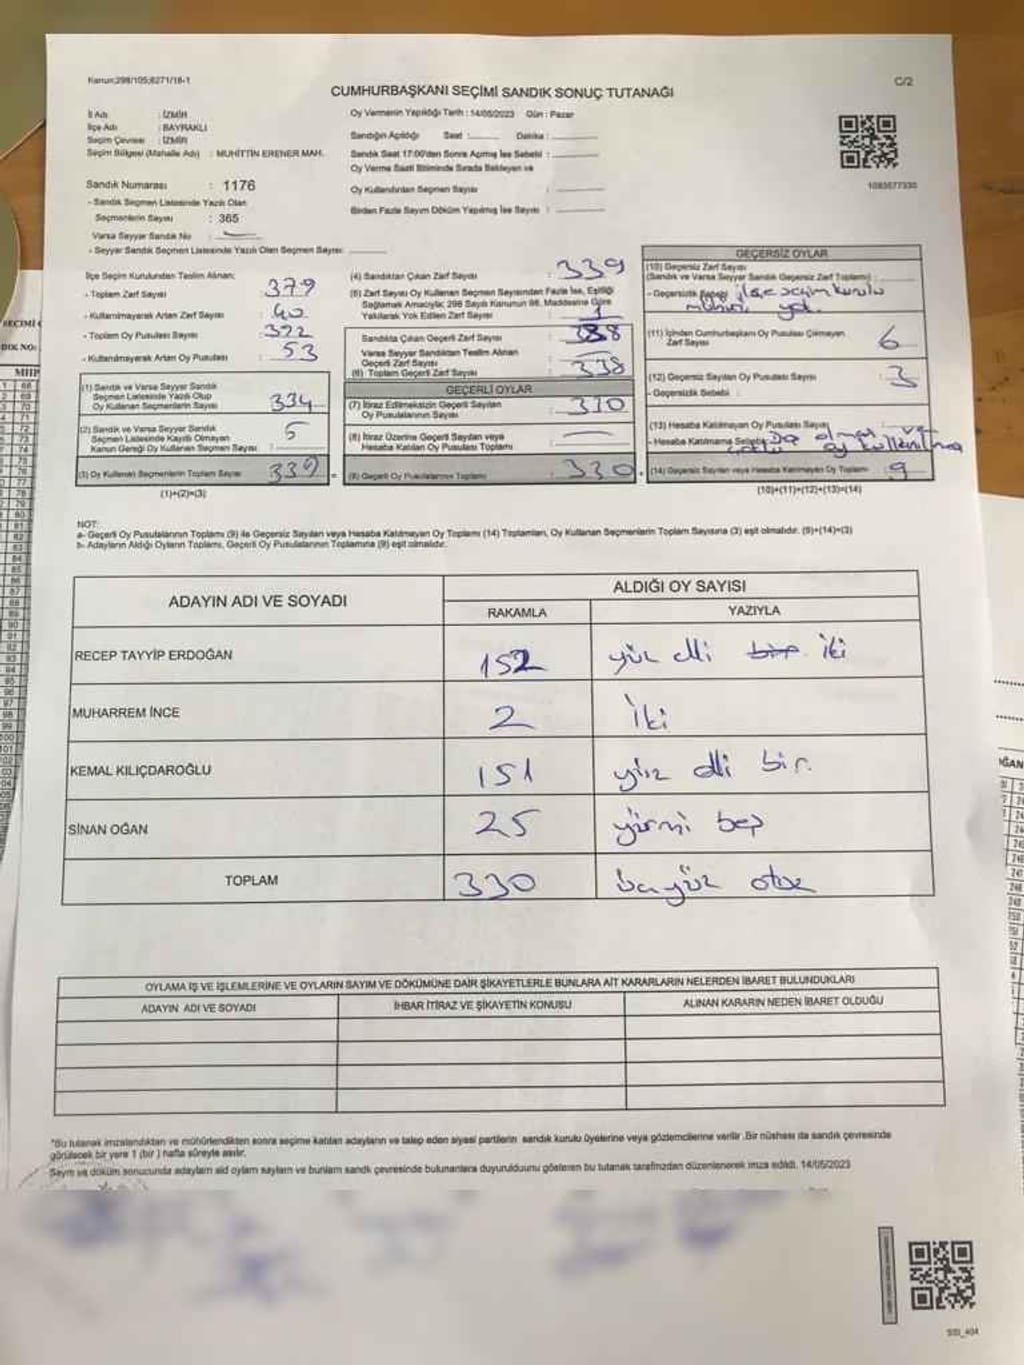 Kanun:298/105;6271/16-1
C/2
CUMHURBAŞKANI SEÇİMİ SANDIK SONUÇ TUTANAĞI
İl Adı : İZMİR
İlçe Adı : BAYRAKLI
Seçim Çevresi : İZMİR
Seçim Bölgesi (Mahalle Adı) : MUHİTTİN ERENER MAH.
Sandık Numarası : 1176
- Sandık Seçmen Listesinde Yazılı Olan
Seçmenlerin Sayısı : 365
Varsa Seyyar Sandık No :
- Seyyar Sandık Seçmen Listesinde Yazılı Olan Seçmen Sayısı:
Oy Vermenin Yapıldığı Tarih : 14/05/2023 Gün : Pazar
Sandığın Açıldığı Saat : Dakika :
Sandık Saat 17:00'den Sonra Açılmış İse Sebebi :
Oy Verme Saati Bitiminde Sırada Bekleyen ve
Oy Kullandırılan Seçmen Sayısı :
Birden Fazla Sayım Döküm Yapılmış İse Sayısı :
1093577330
İlçe Seçim Kurulundan Teslim Alınan;
- Toplam Zarf Sayısı : 379
- Kullanılmayarak Artan Zarf Sayısı : 40
- Toplam Oy Pusulası Sayısı : 392
- Kullanılmayarak Artan Oy Pusulası : 53
(1) Sandık ve Varsa Seyyar Sandık
Seçmen Listesinde Yazılı Olup
Oy Kullanan Seçmenlerin Sayısı : 334
(2) Sandık ve Varsa Seyyar Sandık
Seçmen Listesinde Kayıtlı Olmayan
Kanun Gereği Oy Kullanan Seçmen Sayısı : 5
(3) Oy Kullanan Seçmenlerin Toplam Sayısı : 339
(1)+(2)=(3)
(4) Sandıktan Çıkan Zarf Sayısı : 339
(5) Zarf Sayısı Oy Kullanan Seçmen Sayısından Fazla İse, Eşitliği
Sağlamak Amacıyla; 298 Sayılı Kanunun 98. Maddesine Göre
Yakılarak Yok Edilen Zarf Sayısı : 1
Sandıkta Çıkan Geçerli Zarf Sayısı : 338
Varsa Seyyar Sandıktan Teslim Alınan
Geçerli Zarf Sayısı :
(6) Toplam Geçerli Zarf Sayısı : 338
GEÇERLİ OYLAR
(7) İtiraz Edilmeksizin Geçerli Sayılan
Oy Pusulalarının Sayısı : 310
(8) İtiraz Üzerine Geçerli Sayılan veya
Hesaba Katılan Oy Pusulası Toplamı :
= (9) Geçerli Oy Pusulalarının Toplamı : 330
GEÇERSİZ OYLAR
(10) Geçersiz Zarf Sayısı
(Sandık ve Varsa Seyyar Sandık Geçersiz Zarf Toplamı) :
- Geçersizlik Sebebi : ilçe seçim kurulu
mührü yok.
(11) İçinden Cumhurbaşkanı Oy Pusulası Çıkmayan
Zarf Sayısı : 6
(12) Geçersiz Sayılan Oy Pusulası Sayısı : 3
- Geçersizlik Sebebi :
(13) Hesaba Katılmayan Oy Pusulası Sayısı
- Hesaba Katılmama Sebebi
(14) Geçersiz Sayılan veya Hesaba Katılmayan Oy Toplamı : 9
(10)+(11)+(12)+(13)=(14)
NOT:
a- Geçerli Oy Pusulalarının Toplamı (9) ile Geçersiz Sayılan veya Hesaba Katılmayan Oy Toplamı (14) Toplamları, Oy Kullanan Seçmenlerin Toplam Sayısına (3) eşit olmalıdır. (9)+(14)=(3)
b- Adayların Aldığı Oyların Toplamı, Geçerli Oy Pusulalarının Toplamına (9) eşit olmalıdır.
ADAYIN ADI VE SOYADI
ALDIĞI OY SAYISI
RAKAMLA YAZIYLA
RECEP TAYYİP ERDOĞAN 152 yüz elli bir iki
MUHARREM İNCE 2 iki
KEMAL KILIÇDAROĞLU 151 yüz elli bir.
SİNAN OĞAN 25 yirmi beş
TOPLAM 330 üçyüz otuz
OYLAMA İŞ VE İŞLEMLERİNE VE OYLARIN SAYIM VE DÖKÜMÜNE DAİR ŞİKAYETLERLE BUNLARA AİT KARARLARIN NELERDEN İBARET BULUNDUKLARI
ADAYIN ADI VE SOYADI İHBAR İTİRAZ VE ŞİKAYETİN KONUSU ALINAN KARARIN NEDEN İBARET OLDUĞU
*Bu tutanak imzalandıktan ve mühürlendikten sonra seçime katılan adayların ve talep eden siyasi partilerin sandık kurulu üyelerine veya gözlemcilerine verilir .Bir nüshası da sandık çevresinde
görülecek bir yere 1 (bir ) hafta süreyle asılır.
Sayım ve döküm sonucunda adayların ald oyların sayıların ve bunların sandık çevresinde bulunanlara duyurulduunu gösteren bu tutanak tarafımızdan düzenlenerek imza edildi. 14/05/2023
SSI_404